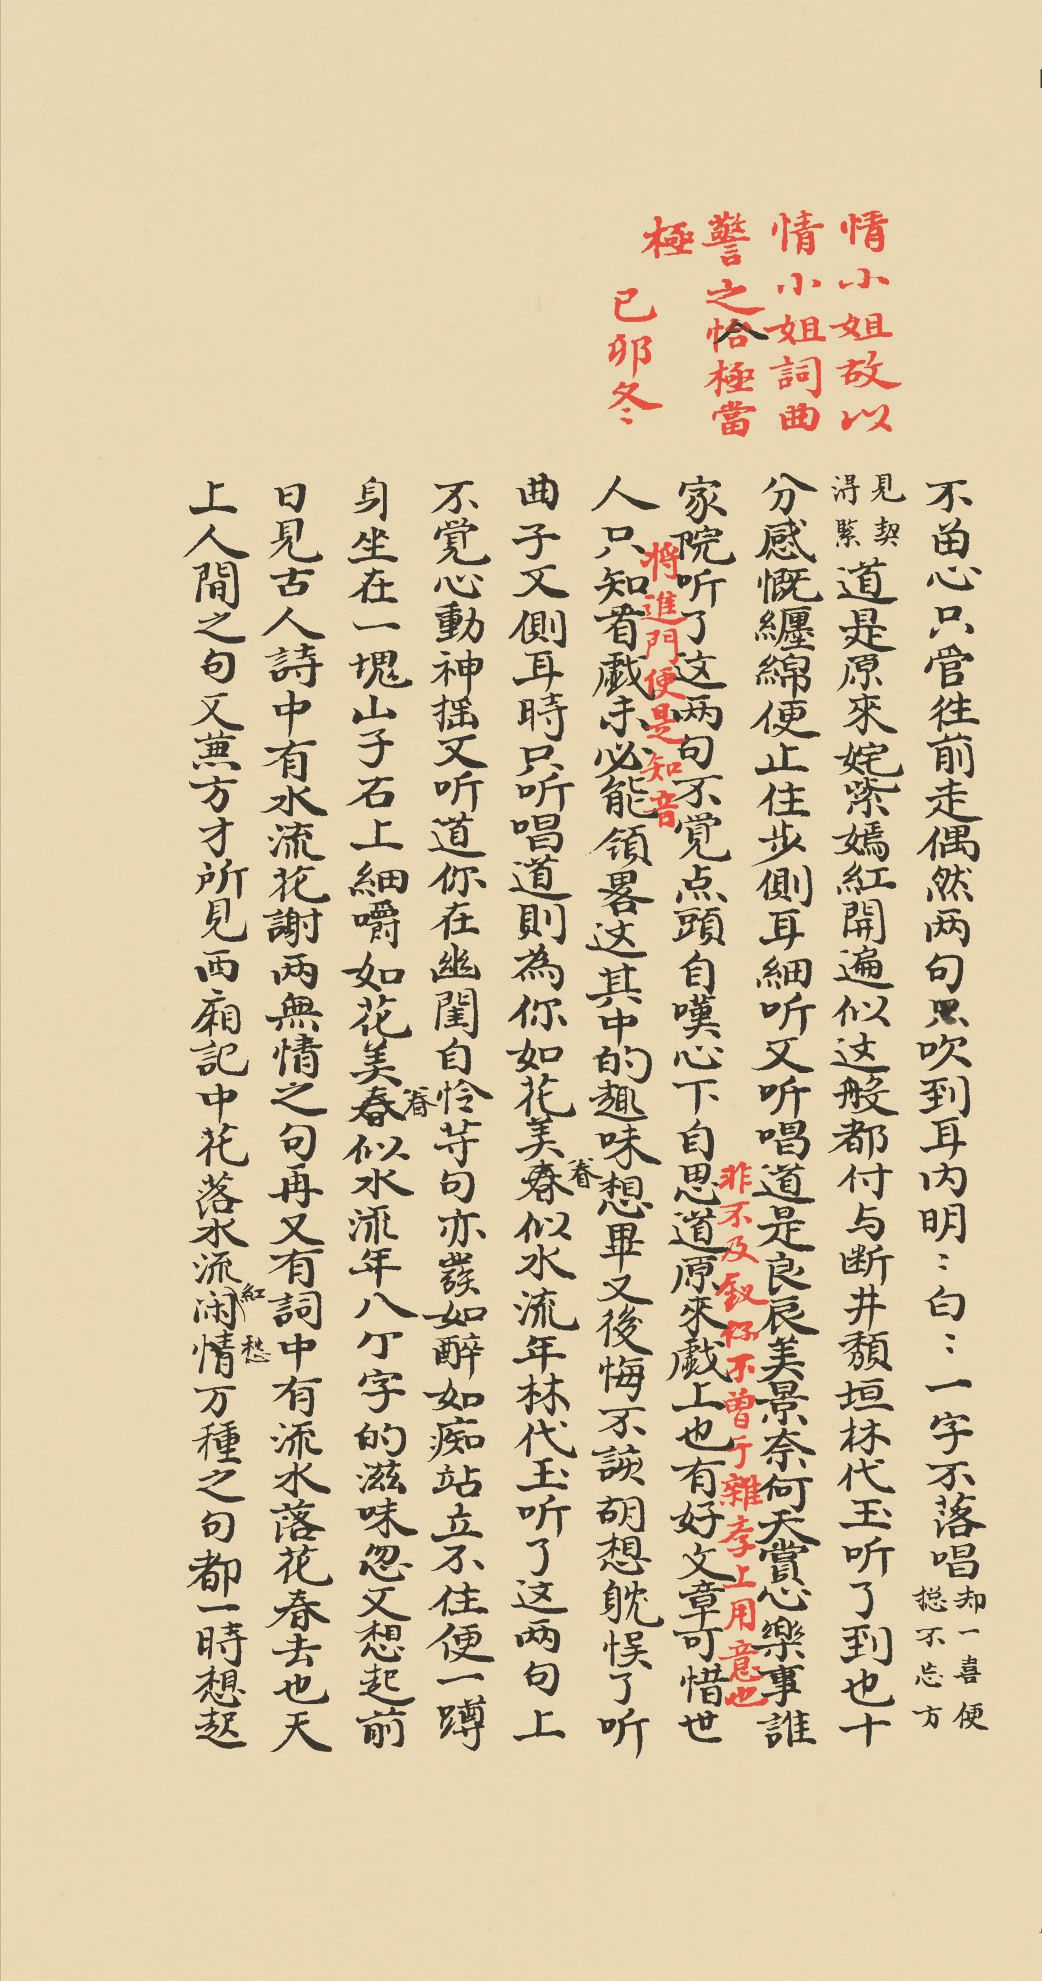 情小姐故以
情小姐詞曲
警之恰極當
極
己卯冬
不畄心只管往前走偶然两句吹到耳内明〻白〻一字不落唱
却一喜便
揔不忘方
見契
淂緊
道是原來姹紫嫣紅開遍似这般都付与断井頽垣林代玉听了到也十
分感慨纏綿便止住步側耳細听又听唱道是良辰美景奈何天賞心樂事誰
非不及釵襟不曽于雜李上用意也
家院听了这两句不覚点頭自嘆心下自思道原來戲上也有好文章可惜世
將進門便是知音
人只知看戲未必能領畧这其中的趣味想畢又後悔不該胡想躭悮了听
曲子又側耳時只听唱道則為你如花美春似水流年林代玉听了这两句上
眷
不覚心動神摇又听道你在幽閨自怜䒭句亦發如醉如痴站立不住便一蹲
身坐在一塊山子石上細嚼如花美春似水流年八个字的滋味忽又想起前
眷
日見古人詩中有水流花謝两無情之句再又有詞中有流水落花春去也天
上人間之句又蒹方才所見西廂記中花落水流闲情万種之句都一時想起
紅
愁